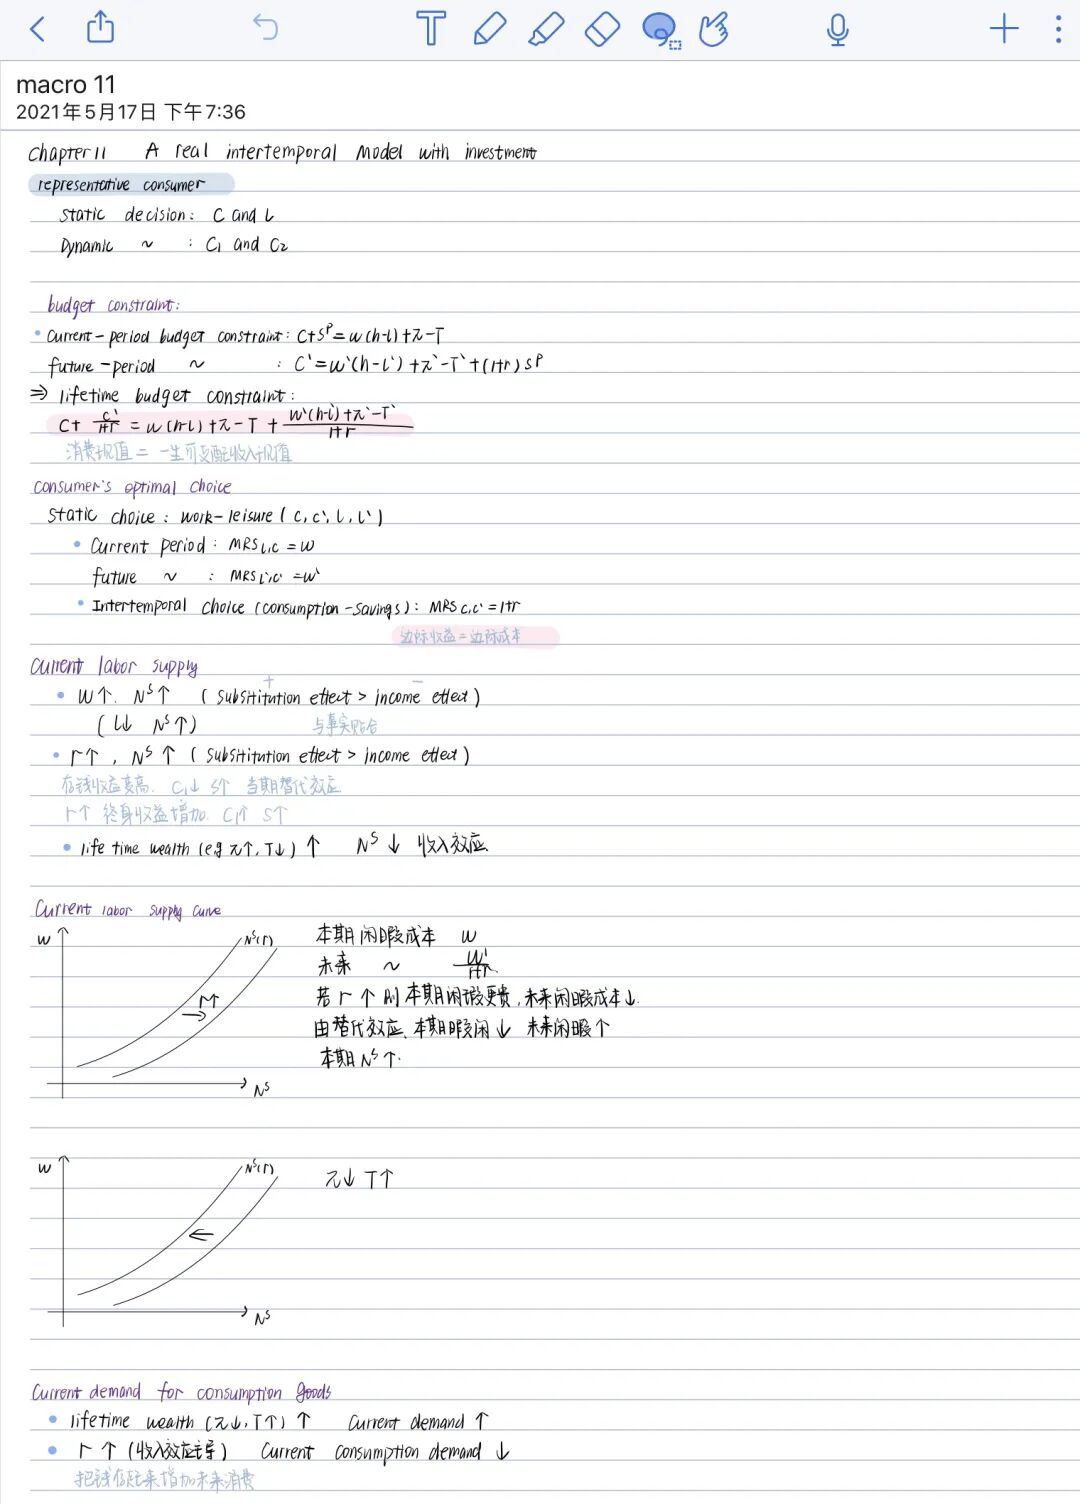 macro 11
2021年5月17日 下午7:36
Chapter 11 A real intertemporal Model with investment
representative consumer
Static decision: C and l
Dynamic ~ : C₁ and C₂
budget constraint:
• Current-period budget constraint: C+Sᴾ=w(h-l)+π-T
future-period ~ : C'=w'(h-l')+π'-T'+(1+r)Sᴾ
⇒ lifetime budget constraint:
C+ C'/1+r = w(h-l)+π-T + w'(h-l')+π'-T'/1+r
消费现值 = 一生可支配收入现值
Consumer's optimal choice
Static choice: work-leisure (C, C', l, l')
• Current period: MRS l,c = w
future ~ : MRS l',c' = w'
• Intertemporal choice (consumption-savings): MRS c,c' = 1+r
边际收益=边际成本
Current labor supply
+ −
• W↑. Nˢ↑ (Substitution effect > income effect)
(l↓ Nˢ↑) 与事实贴合
• r↑, Nˢ↑ (Substitution effect > income effect)
存钱收益变高. C₁↓ S↑ 当期替代效应
r↑ 终身收益增加. C₁↑ S↑
• life time wealth (eg π↑, T↓) ↑ Nˢ↓ 收入效应
Current labor supply curve
w Nˢ(r) 本期闲暇成本 w
未来 ~ w'/1+r
r↑ 若r↑则本期闲暇更贵,未来闲暇成本↓.
由替代效应、本期暇闲↓ 未来闲暇↑
本期Nˢ↑.
Nˢ
w Nˢ(r) π↓ T↑
Nˢ
Current demand for consumption goods
• lifetime wealth (π↓, T↑) ↑ Current demand ↑
• r↑ (收入效应主导) Current consumption demand ↓
把钱存起来增加未来消费